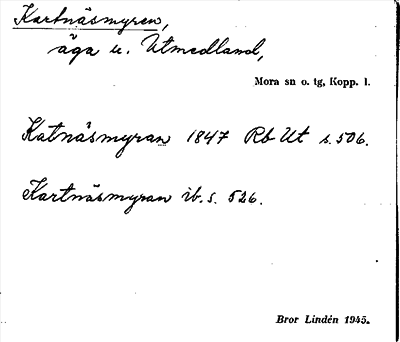 Kartnäsmyren,
äga u. Utmedland,
Mora sn o. tg, Kopp. l.
Katnäsmyran 1847 Rb Ut s. 506.
Kartnäsmyran ib. s. 526.
Bror Lindén 1945.